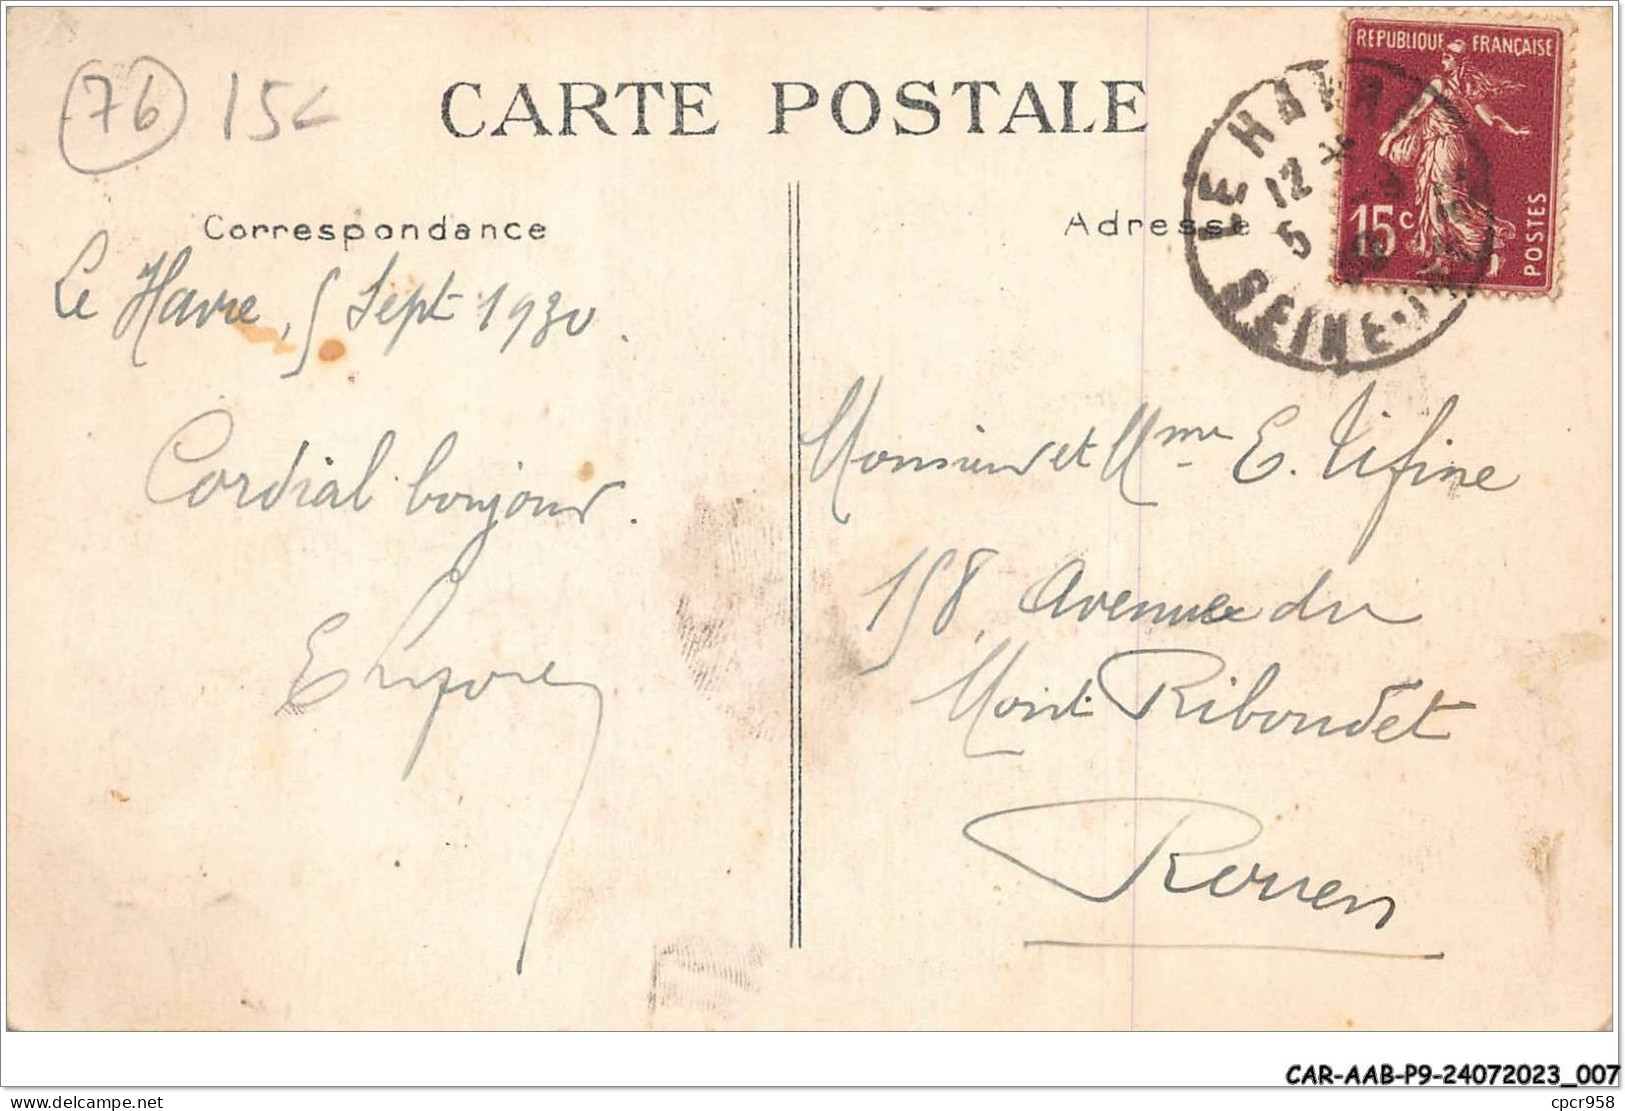 76 15c
CARTE POSTALE
REPUBLIQUE FRANÇAISE
15c
POSTES
LE HAVRE
12
5
SEINE-INF
Correspondance
Adresse
Le Havre, 5 Sept 1930.
Cordial bonjour.
Monsieur et Mme E. Tifine
158, Avenue du
Mont Riboudet
Rouen
CAR-AAB-P9-24072023_007
delcampe.net
cpcr958